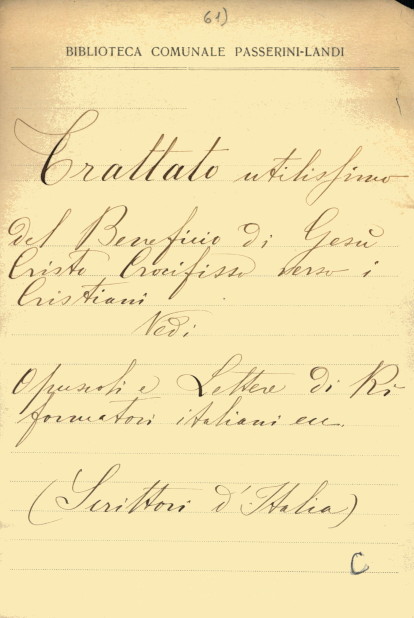 61)
BIBLIOTECA COMUNALE PASSERINI-LANDI
Trattato utilissimo
del Beneficio di Gesù
Cristo Crocifisso verso i
Cristiani
Vedi
Opuscoli e Lettere di Ri
formatori italiani ecc.
(Scrittori d'Italia)
C